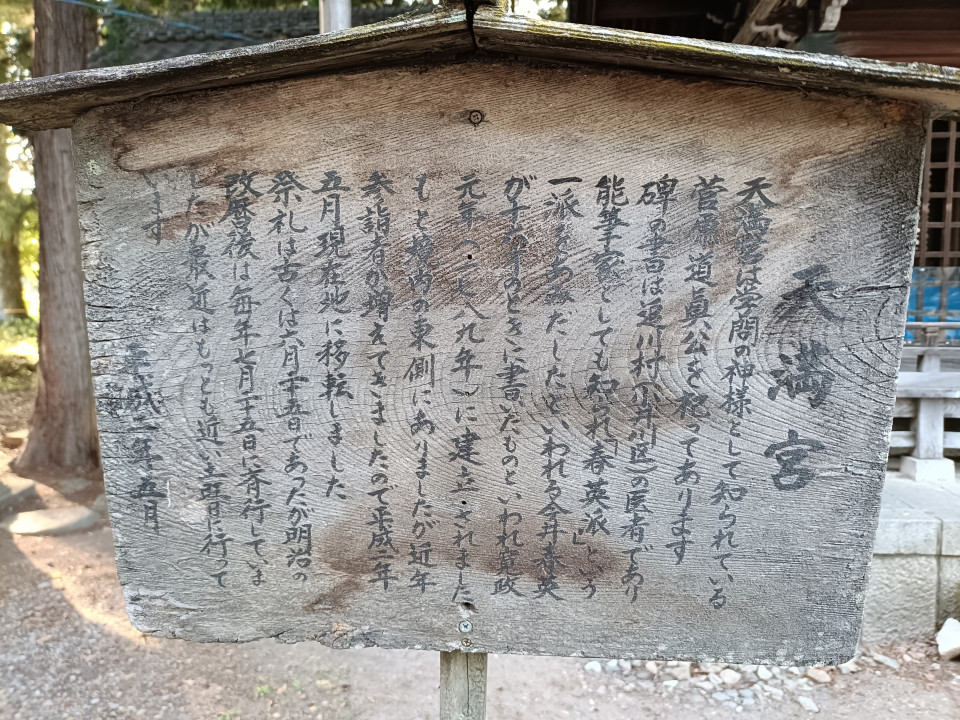 天満宮
天満宮は学問の神様として知られている
菅原道眞公を祀ってあります
碑の書は道川村(小井川区)の医者であり
能筆家としても知られ「春英派」という
一派をあみだしたといわれる今井春英
がのときに書いたものといわれ寛政
元年(一七八九年)に建立されました
もと境内の東側にありましたが近年
参詣者が増えてきましたので平成二年
五月現在地に移転しました
祭礼は古くは六月二十五日であったが明治の
改暦後は毎年七月二十五日に斉行していま
したが最近はもっとも近い土曜日に行って
います
平成二年五月